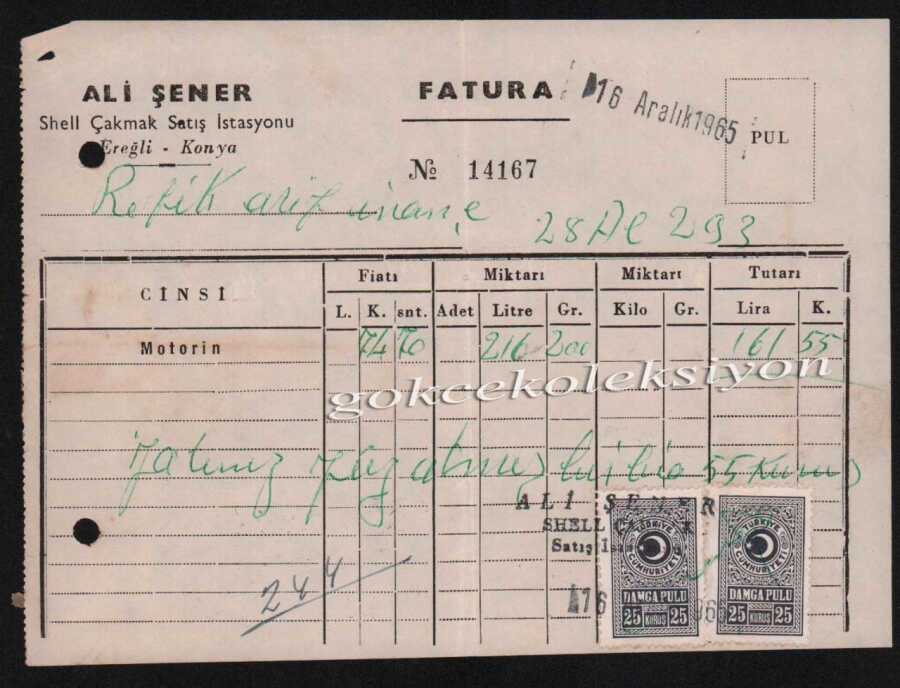 ALİ ŞENER
Shell Çakmak Satış İstasyonu
Ereğli - Konya
FATURA
16 Aralık 1965
PUL
№ 14167
Refik arif inanç
28 AC 293
CİNSİ Fiatı Miktarı Miktarı Tutarı
L. K. snt. Adet Litre Gr. Kilo Gr. Lira K.
Motorin 74 70 216 200 161 55
gokcekoleksiyon
yalnız yüz atmış bir lira 55 kuruş
ALİ ŞENER
SHELL
Satış
16
TÜRKİYE CUMHURİYETİ
DAMGA PULU
25 KURUŞ 25
TÜRKİYE CUMHURİYETİ
DAMGA PULU
25 KURUŞ 25
244